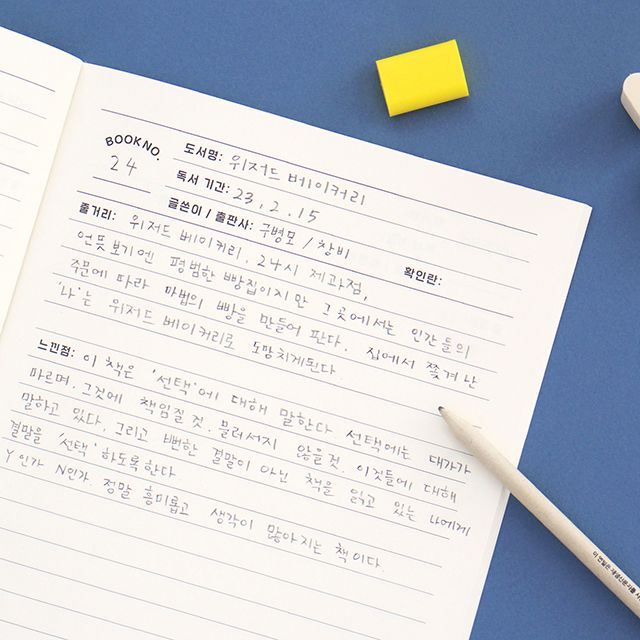 BOOK NO.
24
도서명: 위저드 베이커리
독서 기간: 23. 2. 15
글쓴이 / 출판사: 구병모 / 창비
확인란:
줄거리: 위저드 베이커리. 24시 제과점,
언뜻보기엔 평범한 빵집이지만 그곳에서는 인간들의
주문에 따라 마법의 빵을 만들어 판다. 집에서 쫓겨난
'나'는 위저드 베이커리로 도망치게된다.
느낀점: 이 책은 '선택'에 대해 말한다. 선택에는 대가가
따르며, 그것에 책임질 것. 물러서지 않을것. 이것들에 대해
말하고 있다. 그리고 뻔한 결말이 아닌 책을 읽고 있는 나에게
결말을 '선택' 하도록한다.
Y인가 N인가. 정말 흥미롭고 생각이 많아지는 책이다.